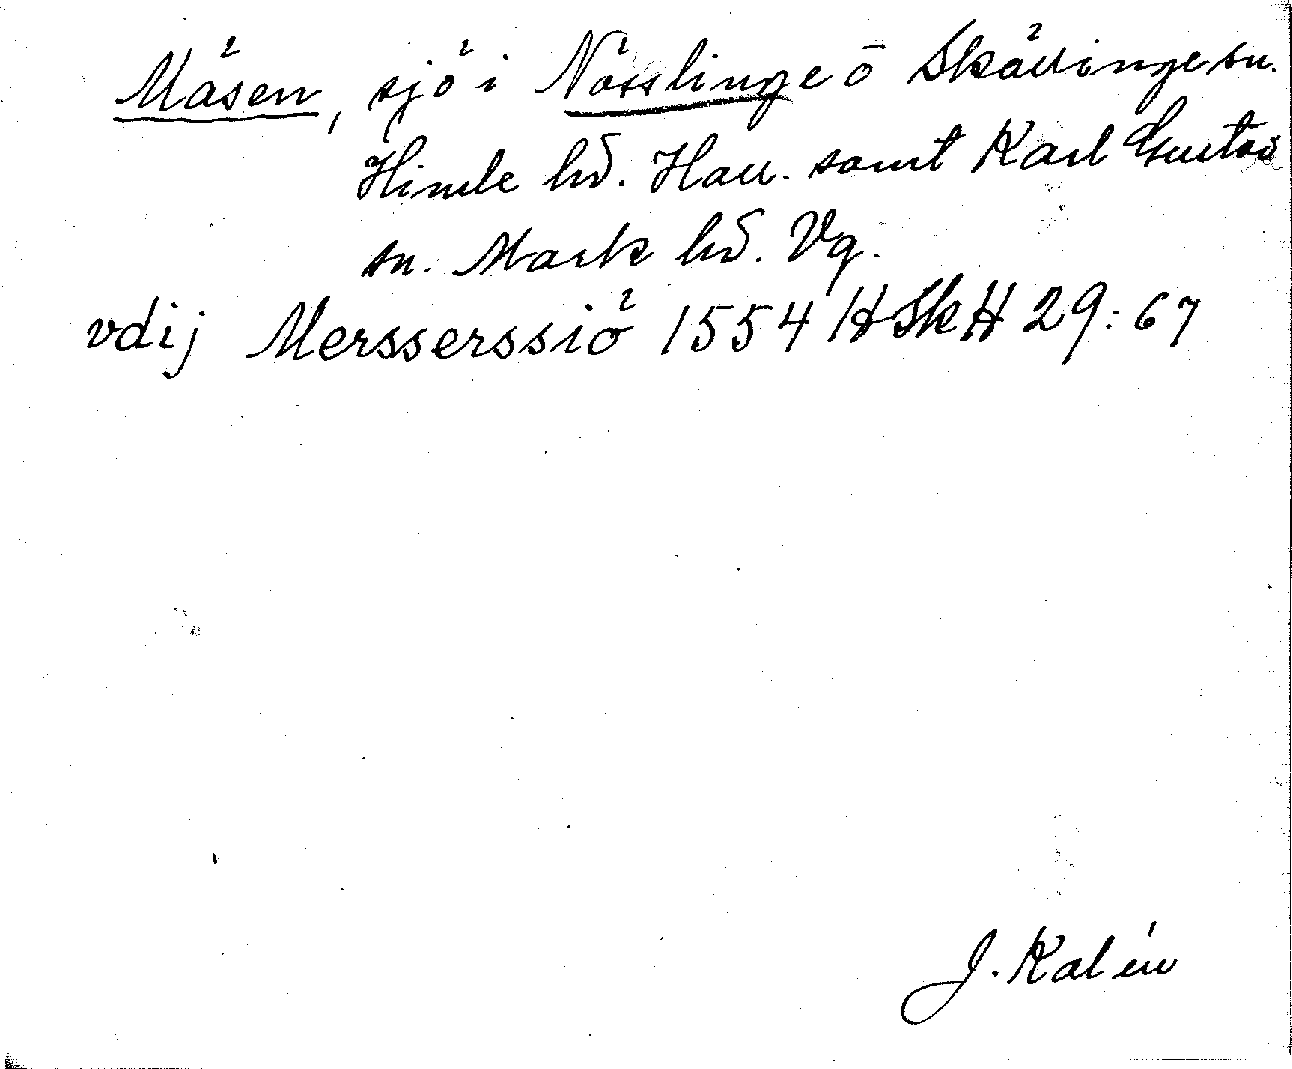 Mäsen, sjö i Nösslinge o Skällinge sn.
Himle hd. Hall. samt Karl Gustav
sn. Mark hd. Vg.
vdij Mersserssiö 1554 HSkH 29:67
J. Kalén